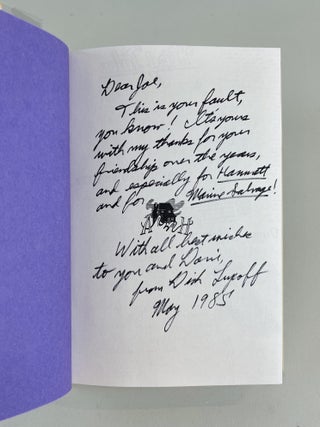 Dear Joe,
This is your fault,
you know! It's yours
with my thanks for your
friendship over the years,
and especially for Hammett
and for Marine Salvage!
With all best wishes
to you and Doris,
from Dick Lupoff
May 1985